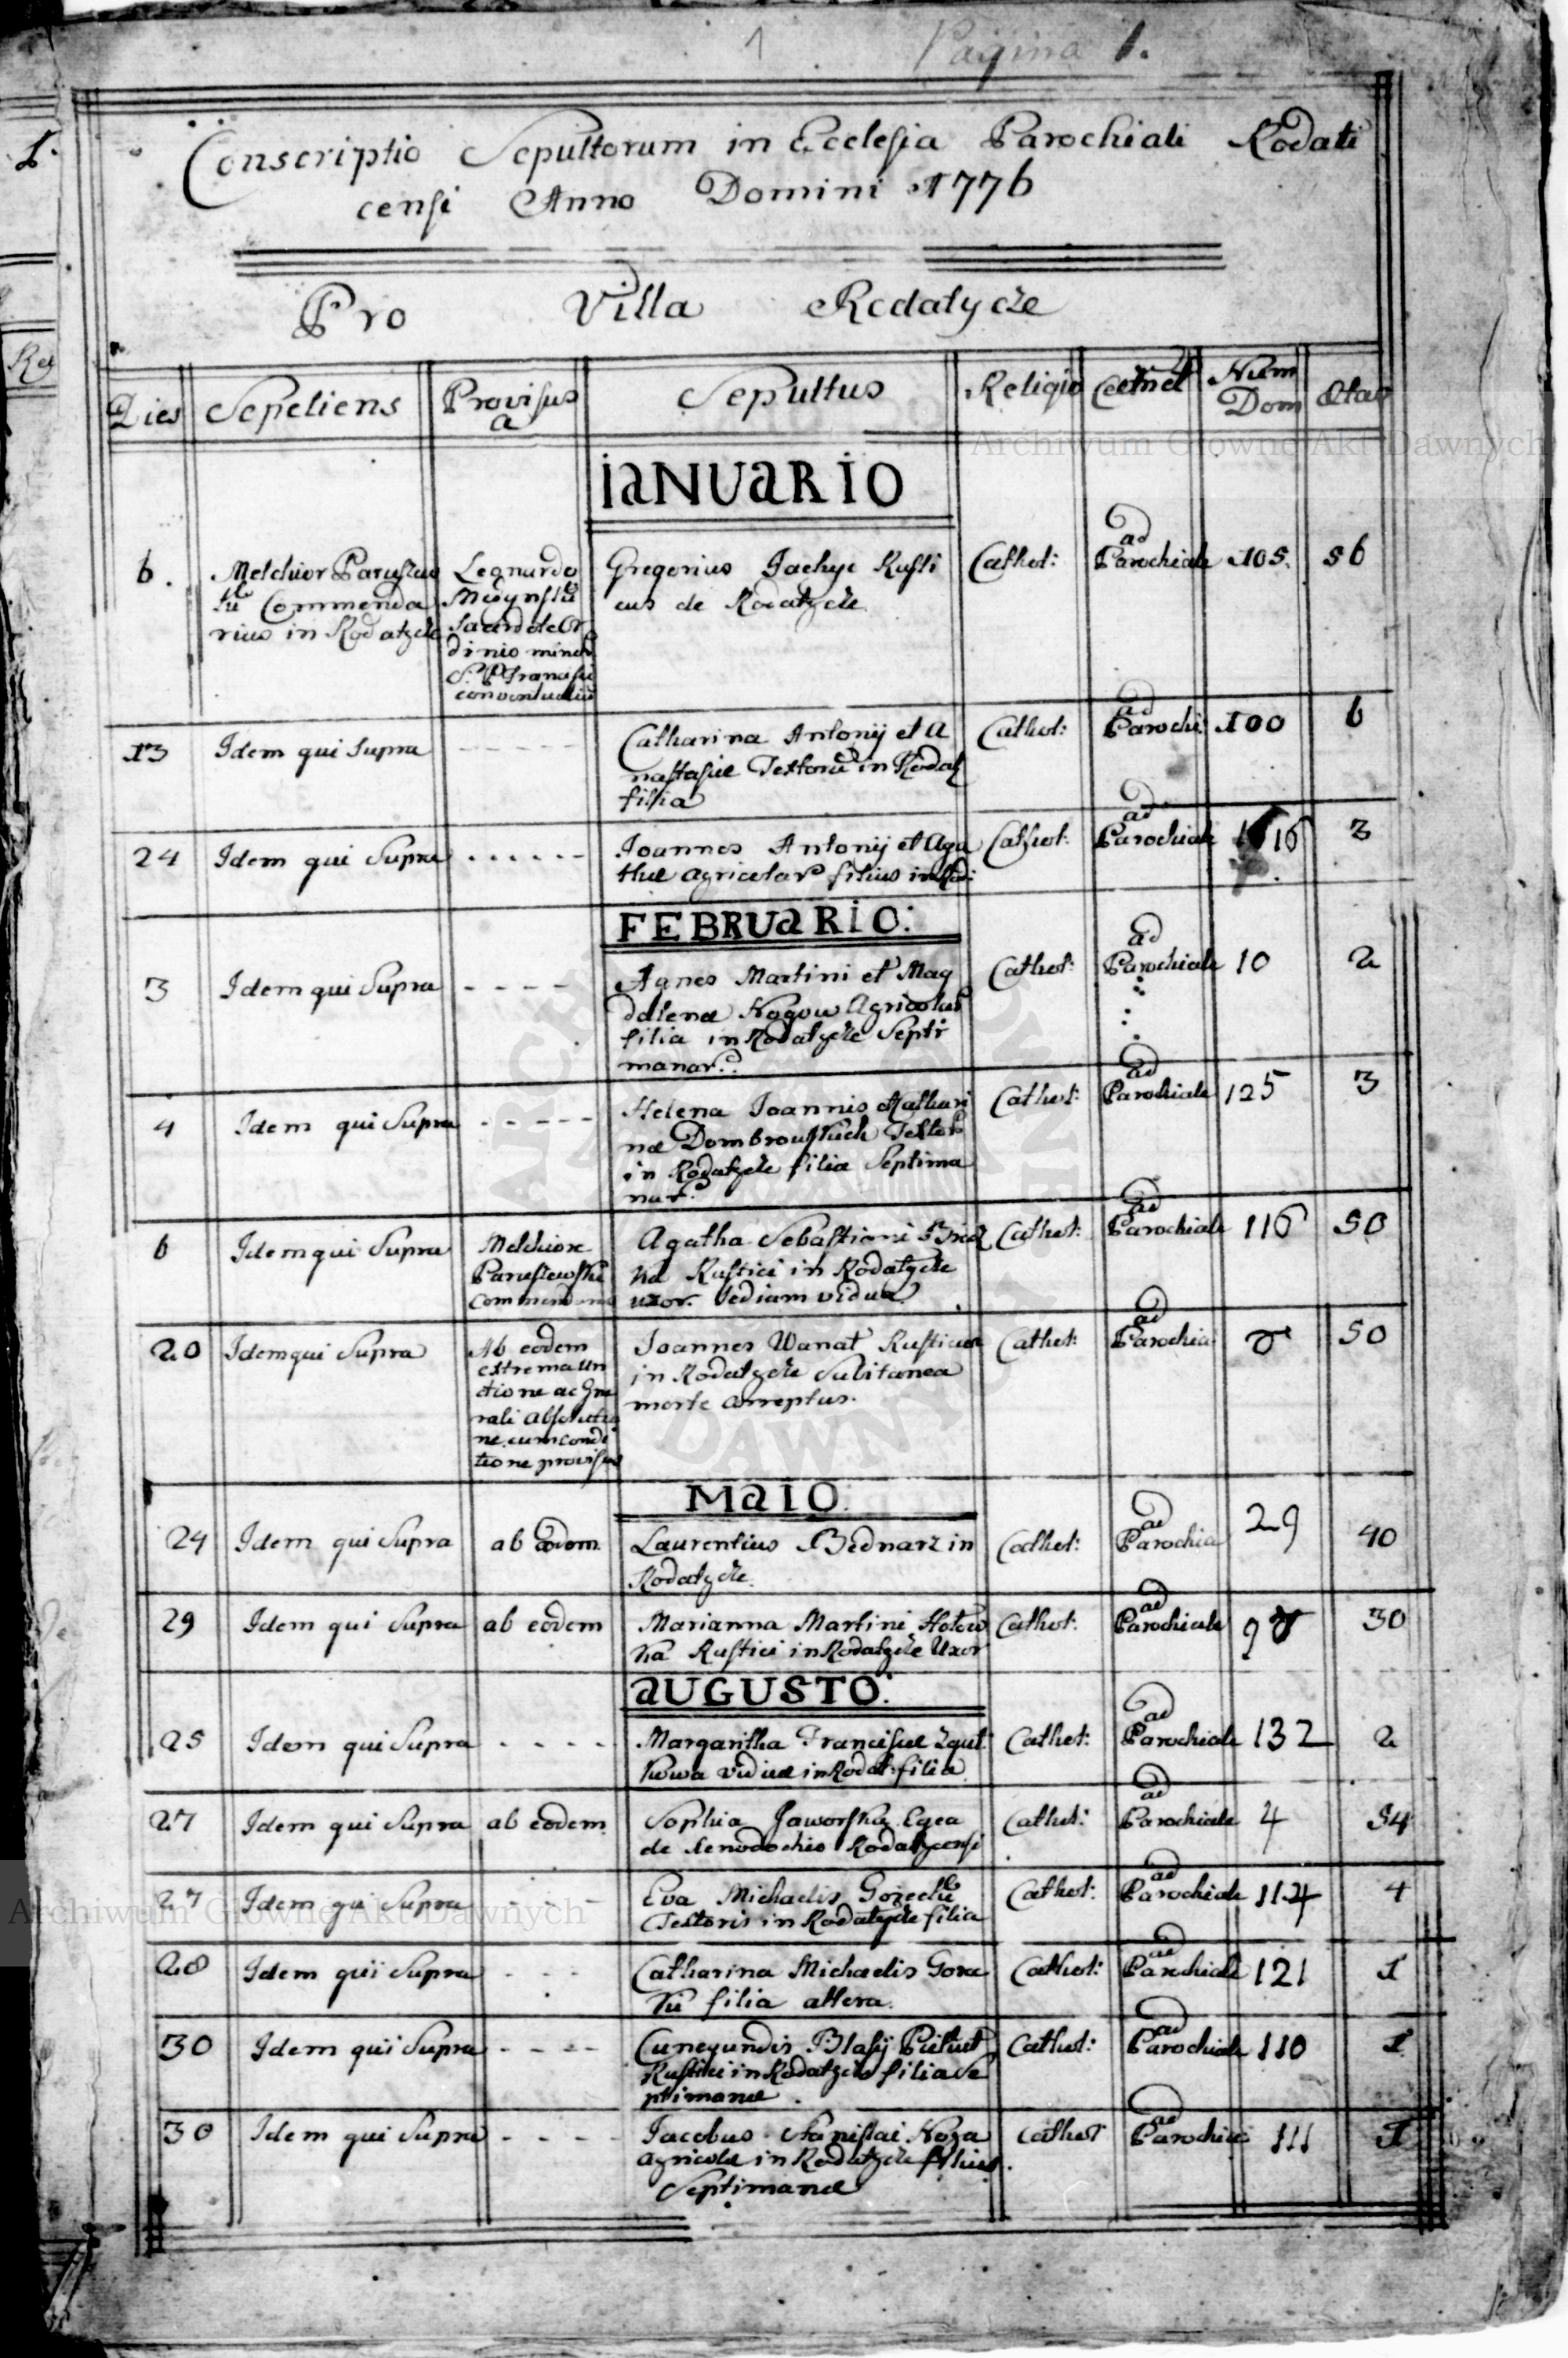 1 Pagina 1.
Conscriptio Sepultorum in Ecclesia Parochiali Rodati
censi Anno Domini 1776
Pro Villa Rodatycze
Dies Sepeliens Provisus a Sepultus Religio Num Dom Ætas
IANUARIO
6. Melchior Commenda
rius in Rodatycze
Leonardo
Sacerdote Or
dinis minor
S. P. Francisci
conventualiu
Gregorius Jachyc Rusti
cus de Rodatycze
Cathol: ad Parochiale 105. 56
13 Idem qui Supra - - - - -
Catharina Antonij et A
nastasiæ Textorũ in Rodat
filia
Cathol: ad Parochi: 100 6
24 Idem qui Supra . . . . . .
Joannes Antonij et Aga
thæ Agricolar filius in Rod:
Cathol: ad Parochiale 3
FEBRUARIO:
3 Idem qui Supra - - - -
Agnes Martini et Mag
dalenæ Agricolar
filia in Rodatycze Septi
manar.
Cathol: ad Parochiale 10 2
4 Idem qui Supra - - - - -
Helena Joannis et Kathari
næ Dombrowskich Textor
in Rodatycze filia Septima
nar.
Cathol: ad Parochiale 125 3
6 Idem qui Supra
Melchiore
Paruszewski
Commendario
Agatha Sebastiani
Rustici in Rodatycze
uxor. Vidua
Cathol: ad Parochiale 116 50
20 Idem qui Supra
Ab eodem
extrema un
ctione ac Gne
rali Absolutio
ne cum condi
tione provisus
Joannes Wanat Rusticus
in Rodatycze Subitanea
morte correptus.
Cathol: ad Parochia 8 50
MAIO.
24 Idem qui Supra ab eodem
Laurentius Bednarz in
Rodatycze.
Cathol: ad Parochia 29 40
29 Idem qui Supra ab eodem
Marianna Martini
Rustici in Rodatycze Uxor
Cathol: ad Parochiale 98 30
AUGUSTO:
25 Idem qui Supra - - - -
Margaritha Franciscæ
viduæ in Rodat: filia
Cathol: ad Parochiale 132 2
27 Idem qui Supra ab eodem
Sophia Jaworska Egea
de Xenodochio Rodatycensi
Cathol: ad Parochiale 4 54
27 Idem qui Supra - - -
Eva Michaelis Gorecki
Textoris in Rodatycze filia
Cathol: ad Parochiale 114 4
28 Idem qui Supra - - -
Catharina Michaelis Gore
ckii filia altera.
Cathol: ad Parochiale 121 1
30 Idem qui Supra - - - -
Cunegundis Blasij
Rustici in Rodatycze filia Se
ptimanæ.
Cathol: ad Parochiale 110 1
30 Idem qui Supra - - - -
Jacobus Stanislai Koza
agricolæ in Rodatycze filius.
Septimanæ
Cathol ad Parochia 111 1
Archiwum Główne Akt Dawnych
Archiwum Główne Akt Dawnych